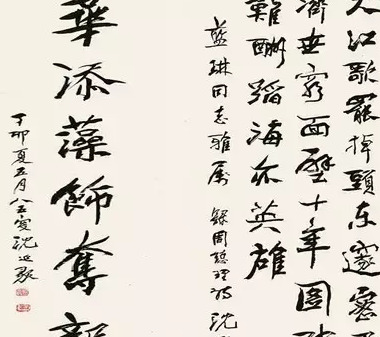 江歌罷掉頭東邃密
濟世窮面壁十年圖
難酬蹈海亦英雄
藍琳同志雅屬 錄周總理詩 沈
華添藻飾奪新
丁卯夏五月八五叟沈延毅